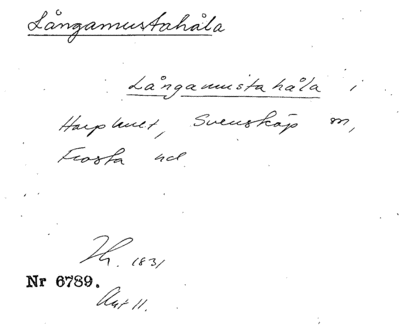 Långamustahåla
Långamustahåla i
Harphult, Svensköp sn,
Frosta hd
Th. 1831
Nr 6789.
Akt 11.